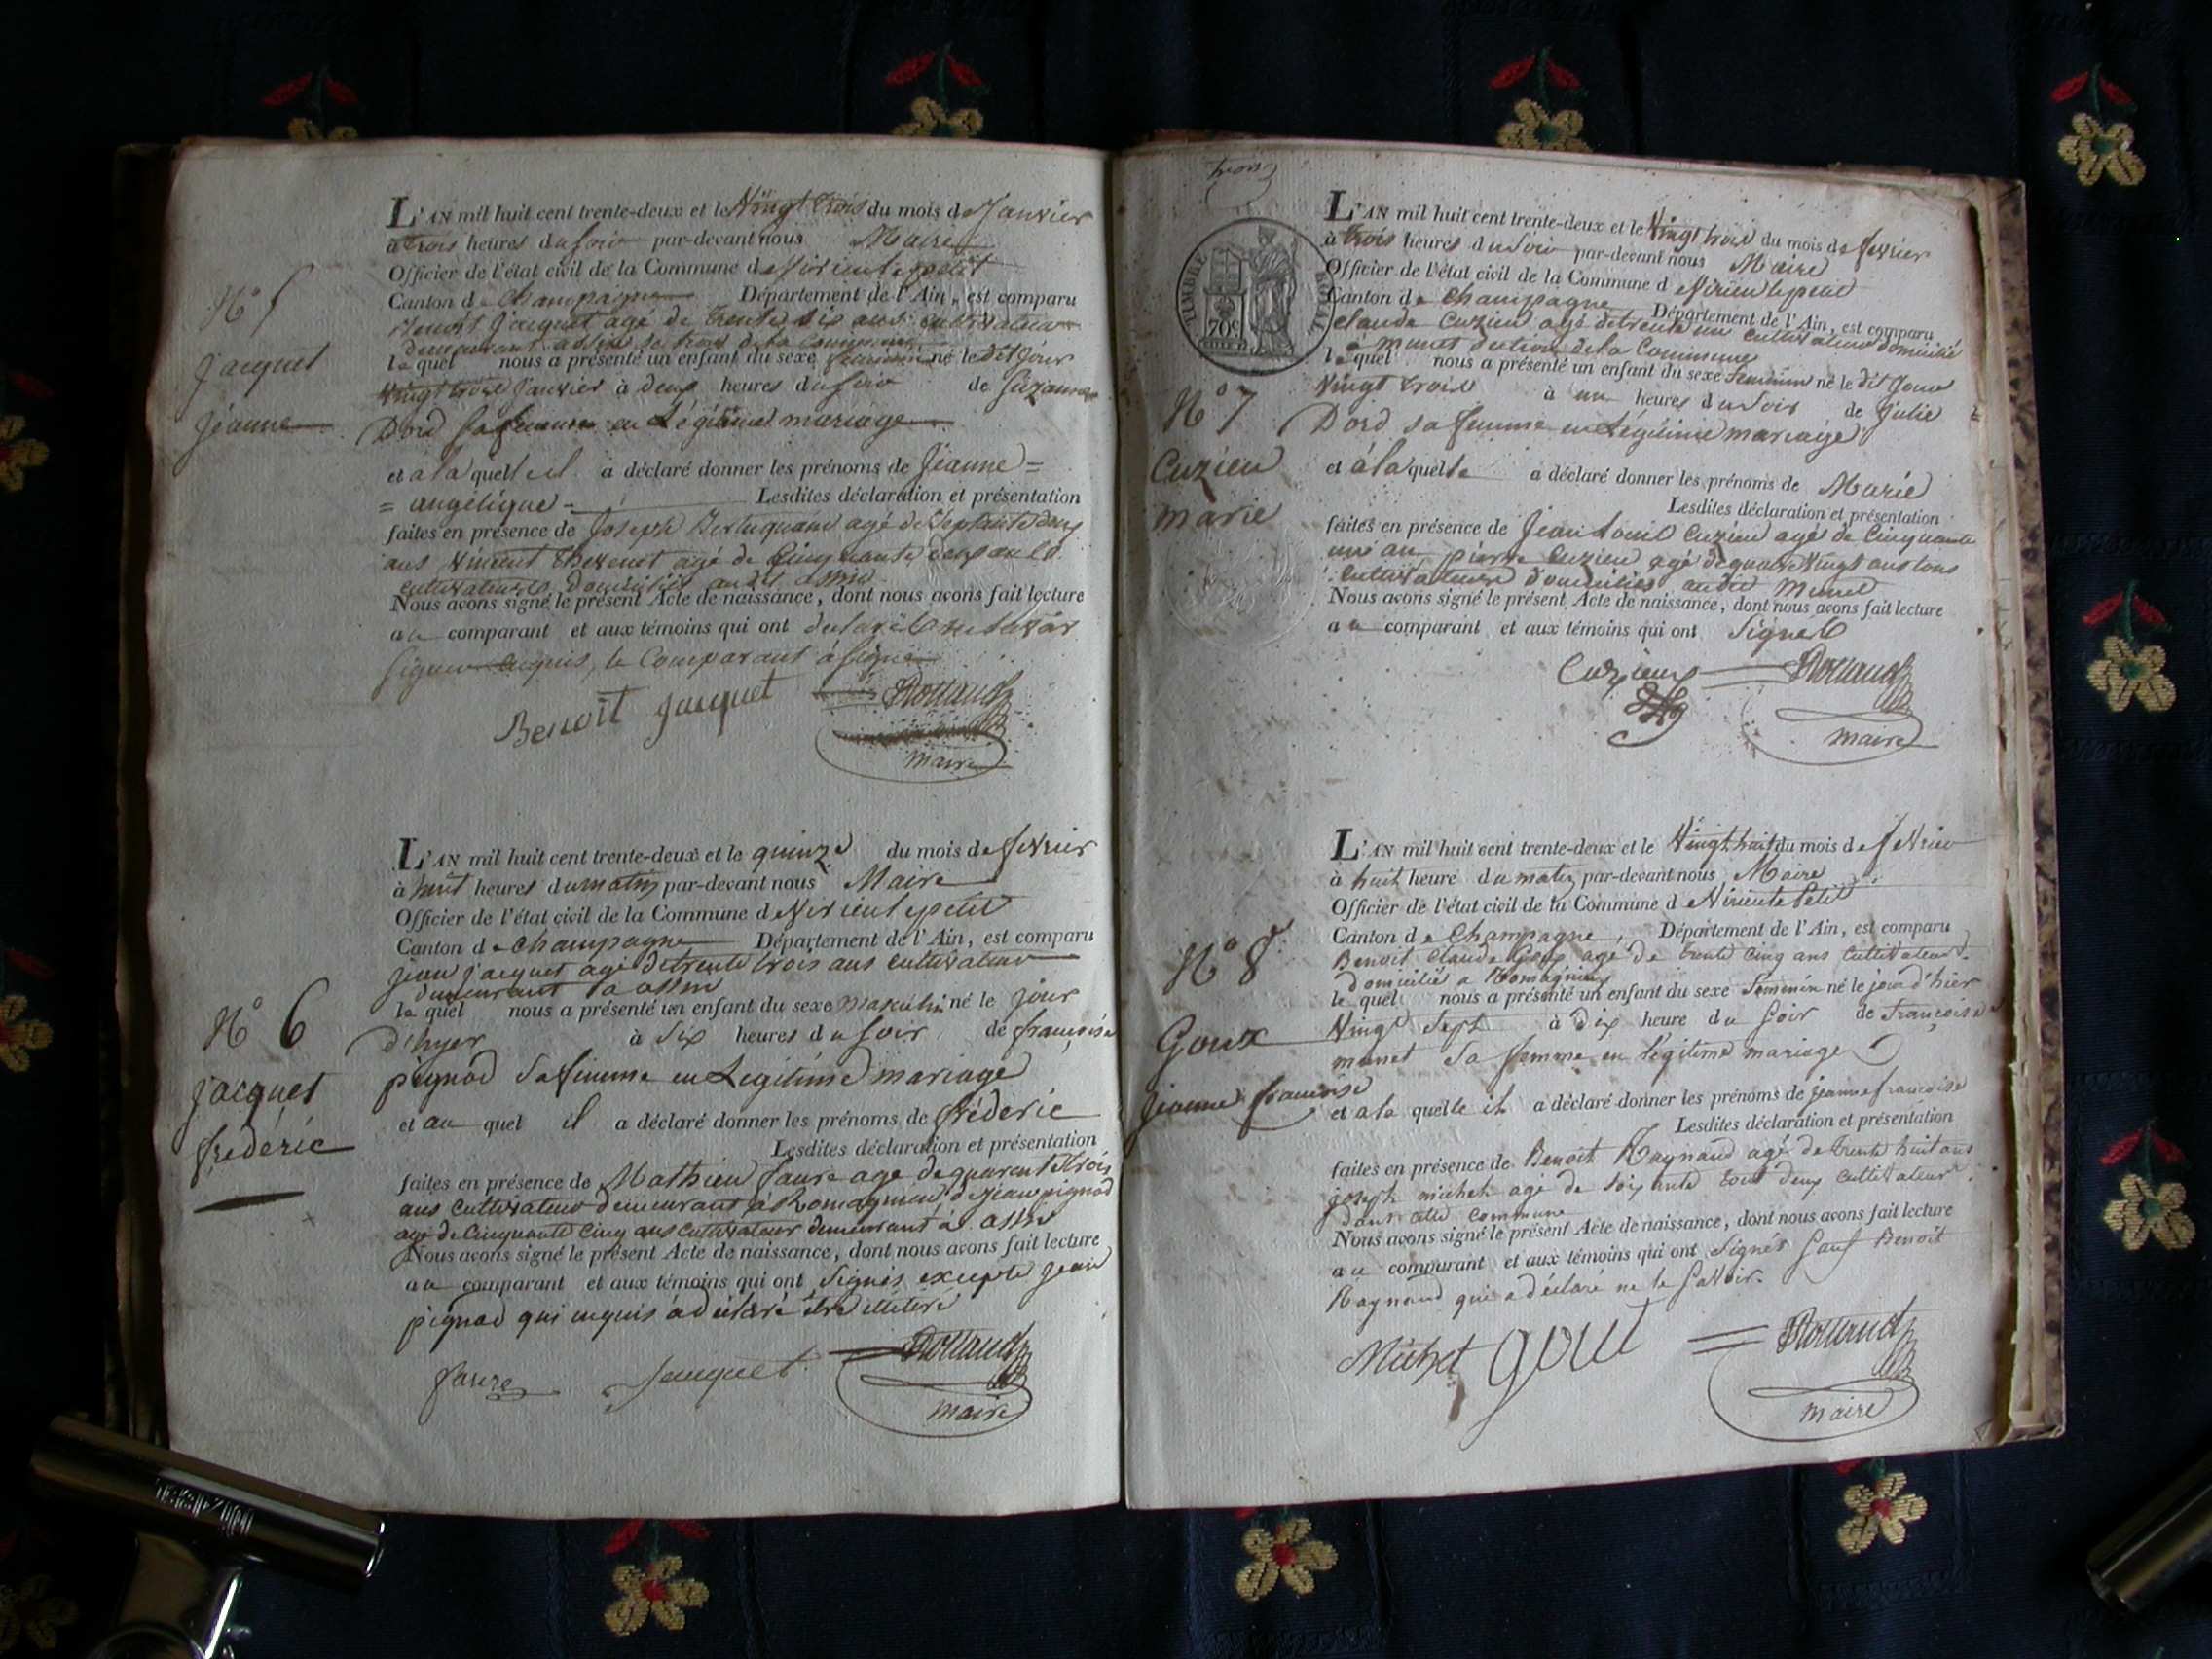 L'AN mil huit cent trente-deux et le Vingt trois du mois de Janvier
à trois heures du soir par-devant nous Maire
Officier de l'état civil de la Commune de Virieu le petit
Canton de Champagne Département de l'Ain, est comparu
Benoit Jacquet agé de trente six ans cultivateur
demeurant a assin de la Commune
le quel nous a présenté un enfant du sexe feminin né le dit jour
Vingt trois Janvier à deux heures du soir de Suzanne
Dord sa femme en Légitime mariage
et a la quelle il a déclaré donner les prénoms de Jeanne =
= angélique - Lesdites déclaration et présentation
faites en présence de Joseph agé de Septante deux
ans Vincent Thevenet agé de Cinquante deux ans
cultivateurs Domiciliés au dit assin
Nous avons signé le présent Acte de naissance, dont nous avons fait lecture
au comparant et aux témoins qui ont
signer requis, le Comparant à signé
Benoit Jacquet Rottaud
maire
N° 5
Jacquet
Jeanne
L'AN mil huit cent trente-deux et le quinze du mois de fevrier
à huit heures du matin par-devant nous Maire
Officier de l'état civil de la Commune de Virieu le petit
Canton de Champagne Département de l'Ain, est comparu
jean jacquet agé de trente trois ans cultivateur
demeurant a assin
le quel nous a présenté un enfant du sexe masculin né le jour
d'hyer à six heures du soir de françoise
pignod Sa femme en Legitime mariage
et au quel il a déclaré donner les prénoms de fréderic
Lesdites déclaration et présentation
faites en présence de Mathieu faure age de quarente trois
ans cultivateur demeurant à Romagnieu & jean pignod
agé de Cinquante cinq ans cultivateur demeurant à assin
Nous avons signé le présent Acte de naissance, dont nous avons fait lecture
au comparant et aux témoins qui ont Signés excepté jean
pignod qui requis à déclaré être illitéré
faure Jacquet Rottaud
maire
N° 6
jacquet
fréderic
trois
TIMBRE ROYAL
70c
L'AN mil huit cent trente-deux et le Vingt trois du mois de fevrier
à trois heures du soir par-devant nous Maire
Officier de l'état civil de la Commune de Virieu le petit
Canton de Champagne Département de l'Ain, est comparu
claude Cuzieu agé de trente un cultivateur domicilié
a Munet section de la Commune
le quel nous a présenté un enfant du sexe feminin né le dit Jour
Vingt trois à un heures du Soir de Julie
Dord sa femme en Légitime mariage
et à la quelle a déclaré donner les prénoms de Marie
Lesdites déclaration et présentation
faites en présence de Jean Louis Cuzieu agés de Cinquante
un an pierre Cuzieu agé de quatre Vingt ans tous
cultivateurs domiciliés au dit Munet
Nous avons signé le présent Acte de naissance, dont nous avons fait lecture
au comparant et aux témoins qui ont Signés
Cuzieux Rottaud
maire
N° 7
Cuzieu
Marie
L'AN mil huit cent trente-deux et le Vingt huit du mois de fevrier
à huit heure du matin par-devant nous Maire
Officier de l'état civil de la Commune de Virieu le Petit
Canton de Champagne, Département de l'Ain, est comparu
Benoit Claude Goux agé de trente cinq ans cultivateur
domicilié a Romagnieu
le quel nous a présenté un enfant du sexe feminin né le jour d'hier
Vingt Sept à dix heure du soir de françoise
munet Sa femme en légitime mariage
et a la quelle il a déclaré donner les prénoms de jeanne françoise
Lesdites déclaration et présentation
faites en présence de Benoit Raynaud agé de trente huit ans
joseph michet agé de soixante tous deux cultivateur
dans cette commune
Nous avons signé le présent Acte de naissance, dont nous avons fait lecture
au comparant et aux témoins qui ont Signés Sauf Benoit
Raynaud qui a déclaré ne le Savoir.
Michet goux Rottaud
maire
N° 8
Goux
jeanne françoise